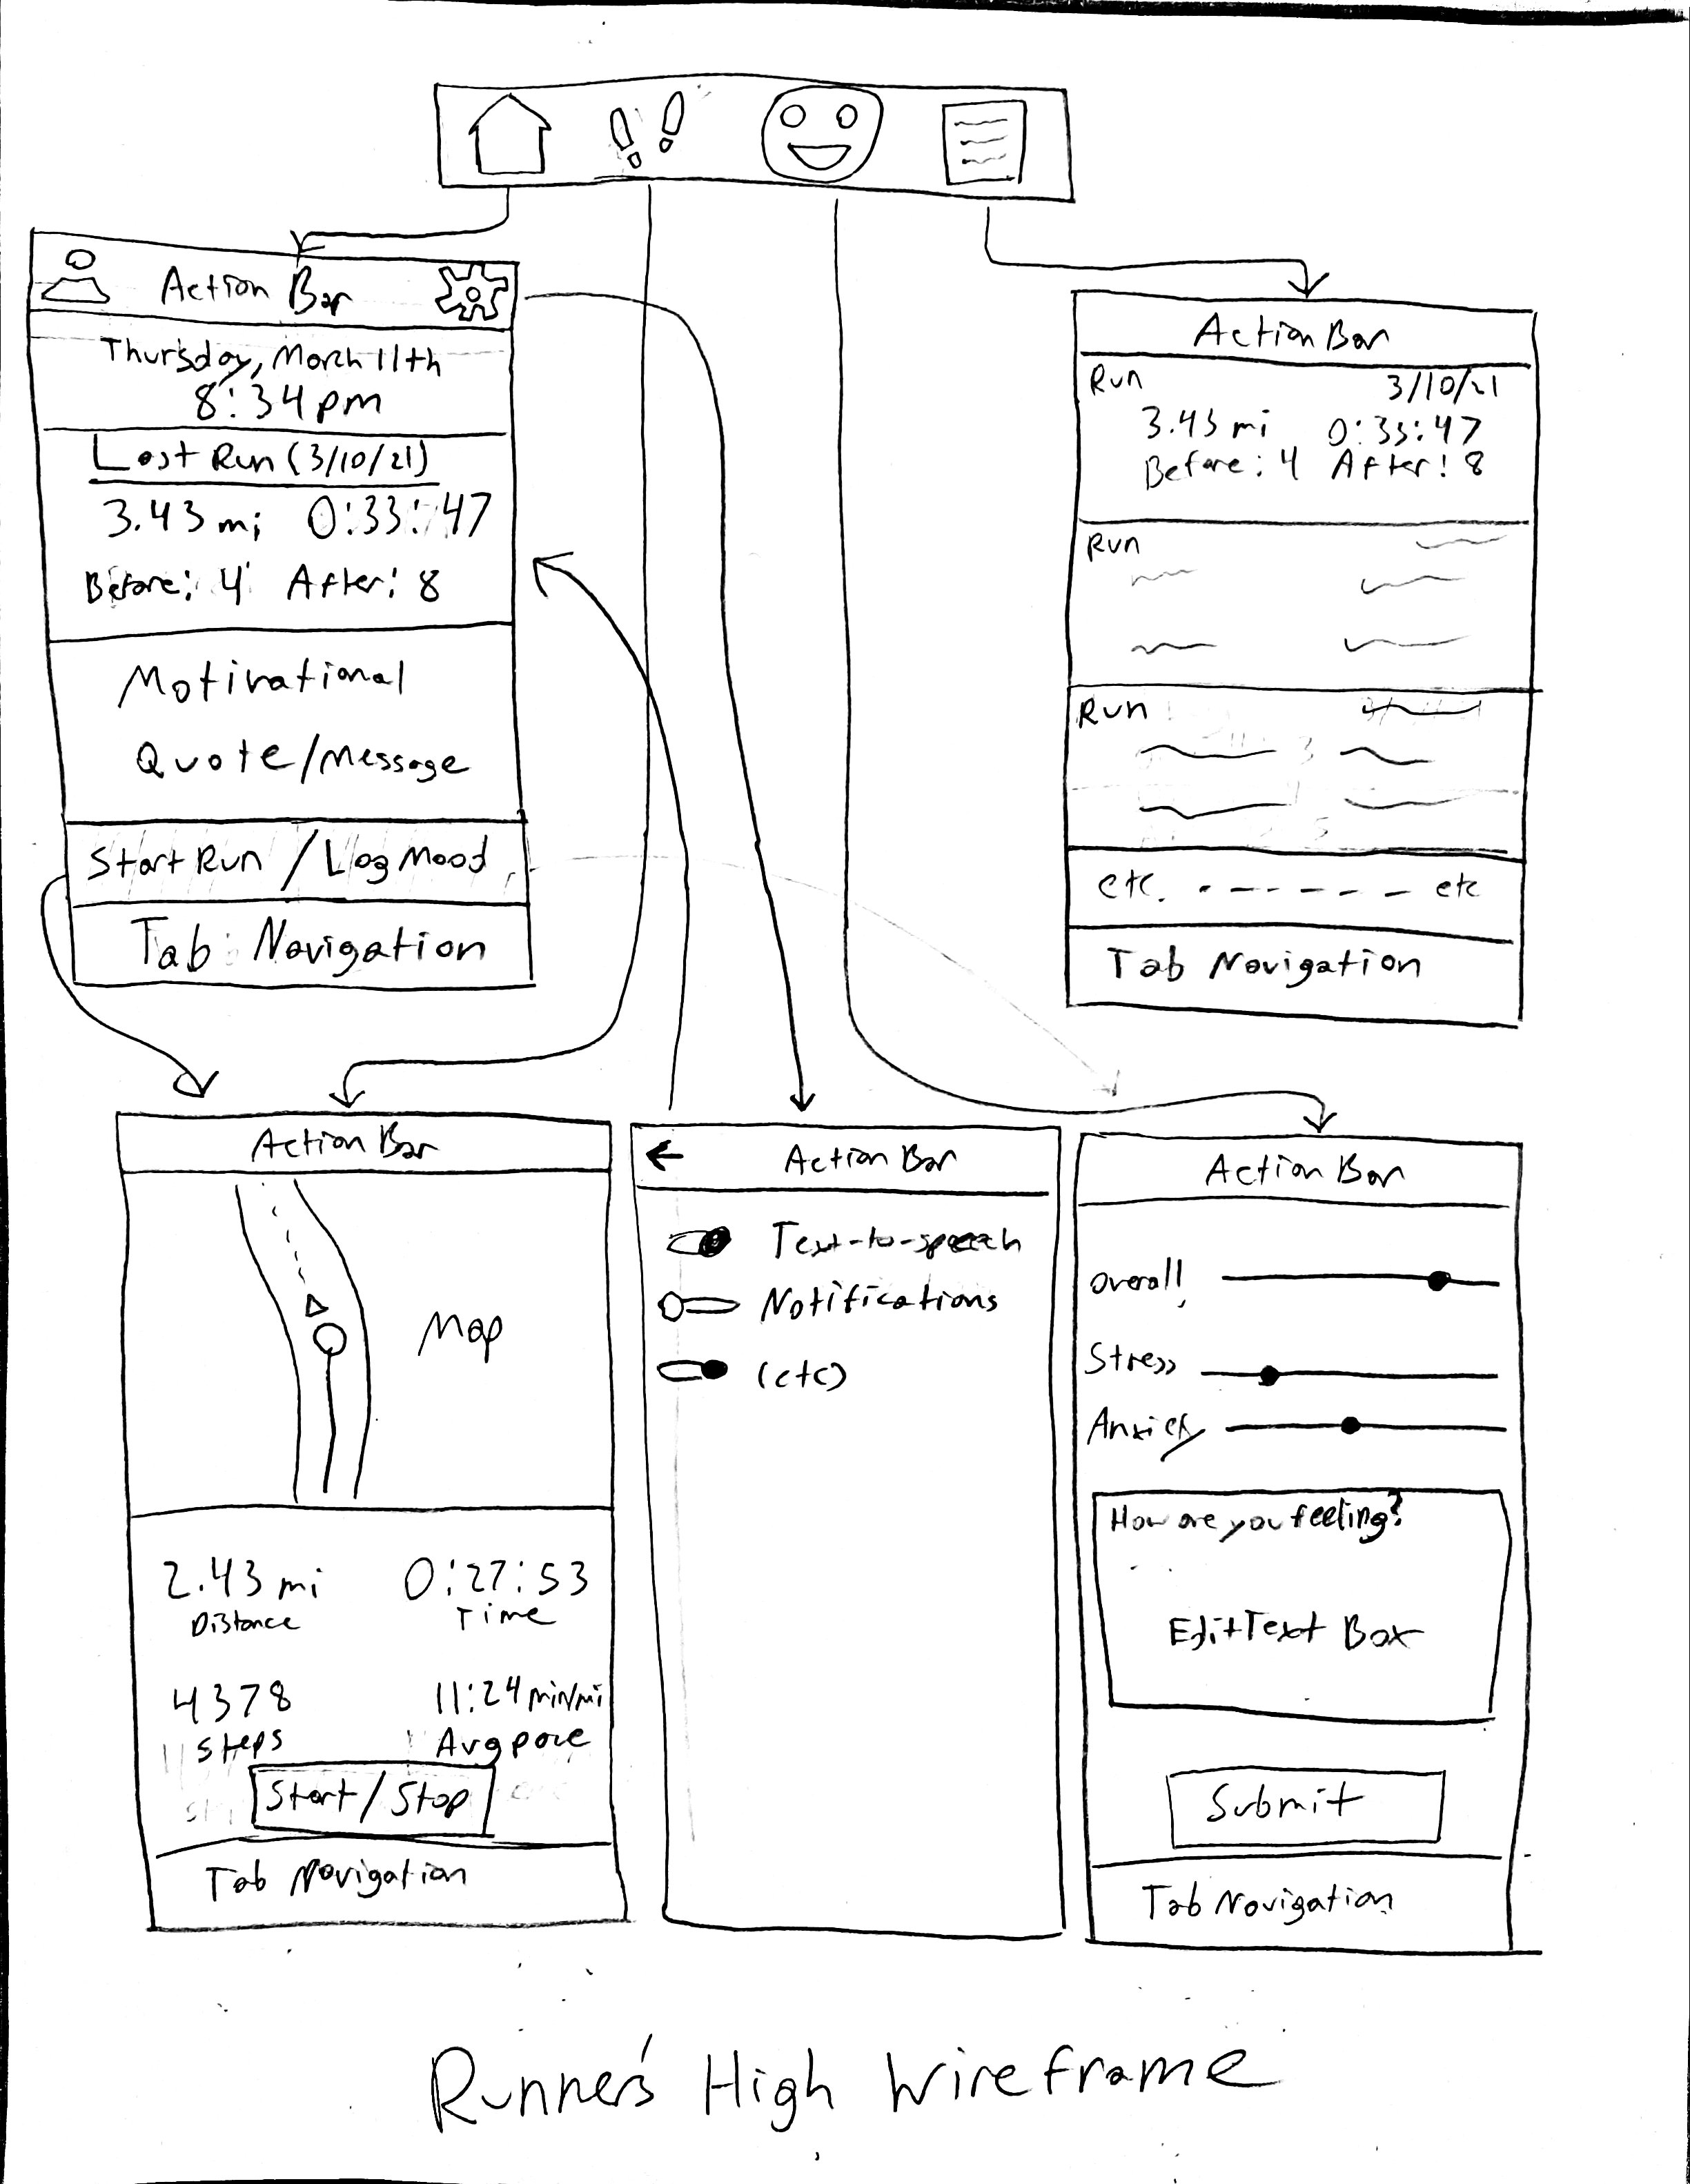 Action Bar
Thursday, March 11th
8:34pm
Last Run (3/10/21)
3.43 mi 0:33:47
Before: 4 After: 8
Motivational
Quote/Message
Start Run / Log Mood
Tab Navigation
Action Bar
Run 3/10/21
3.43 mi 0:33:47
Before: 4 After: 8
Run
Run
etc. - - - - - - etc
Tab Navigation
Action Bar
Map
2.43 mi 0:27:53
Distance Time
4378 11:24 min/mi
Steps Avg pace
Start/Stop
Tab Navigation
Action Bar
Text-to-speech
Notifications
(etc)
Action Bar
Overall
Stress
Anxiety
How are you feeling?
EditText Box
Submit
Tab Navigation
Runner's High Wireframe